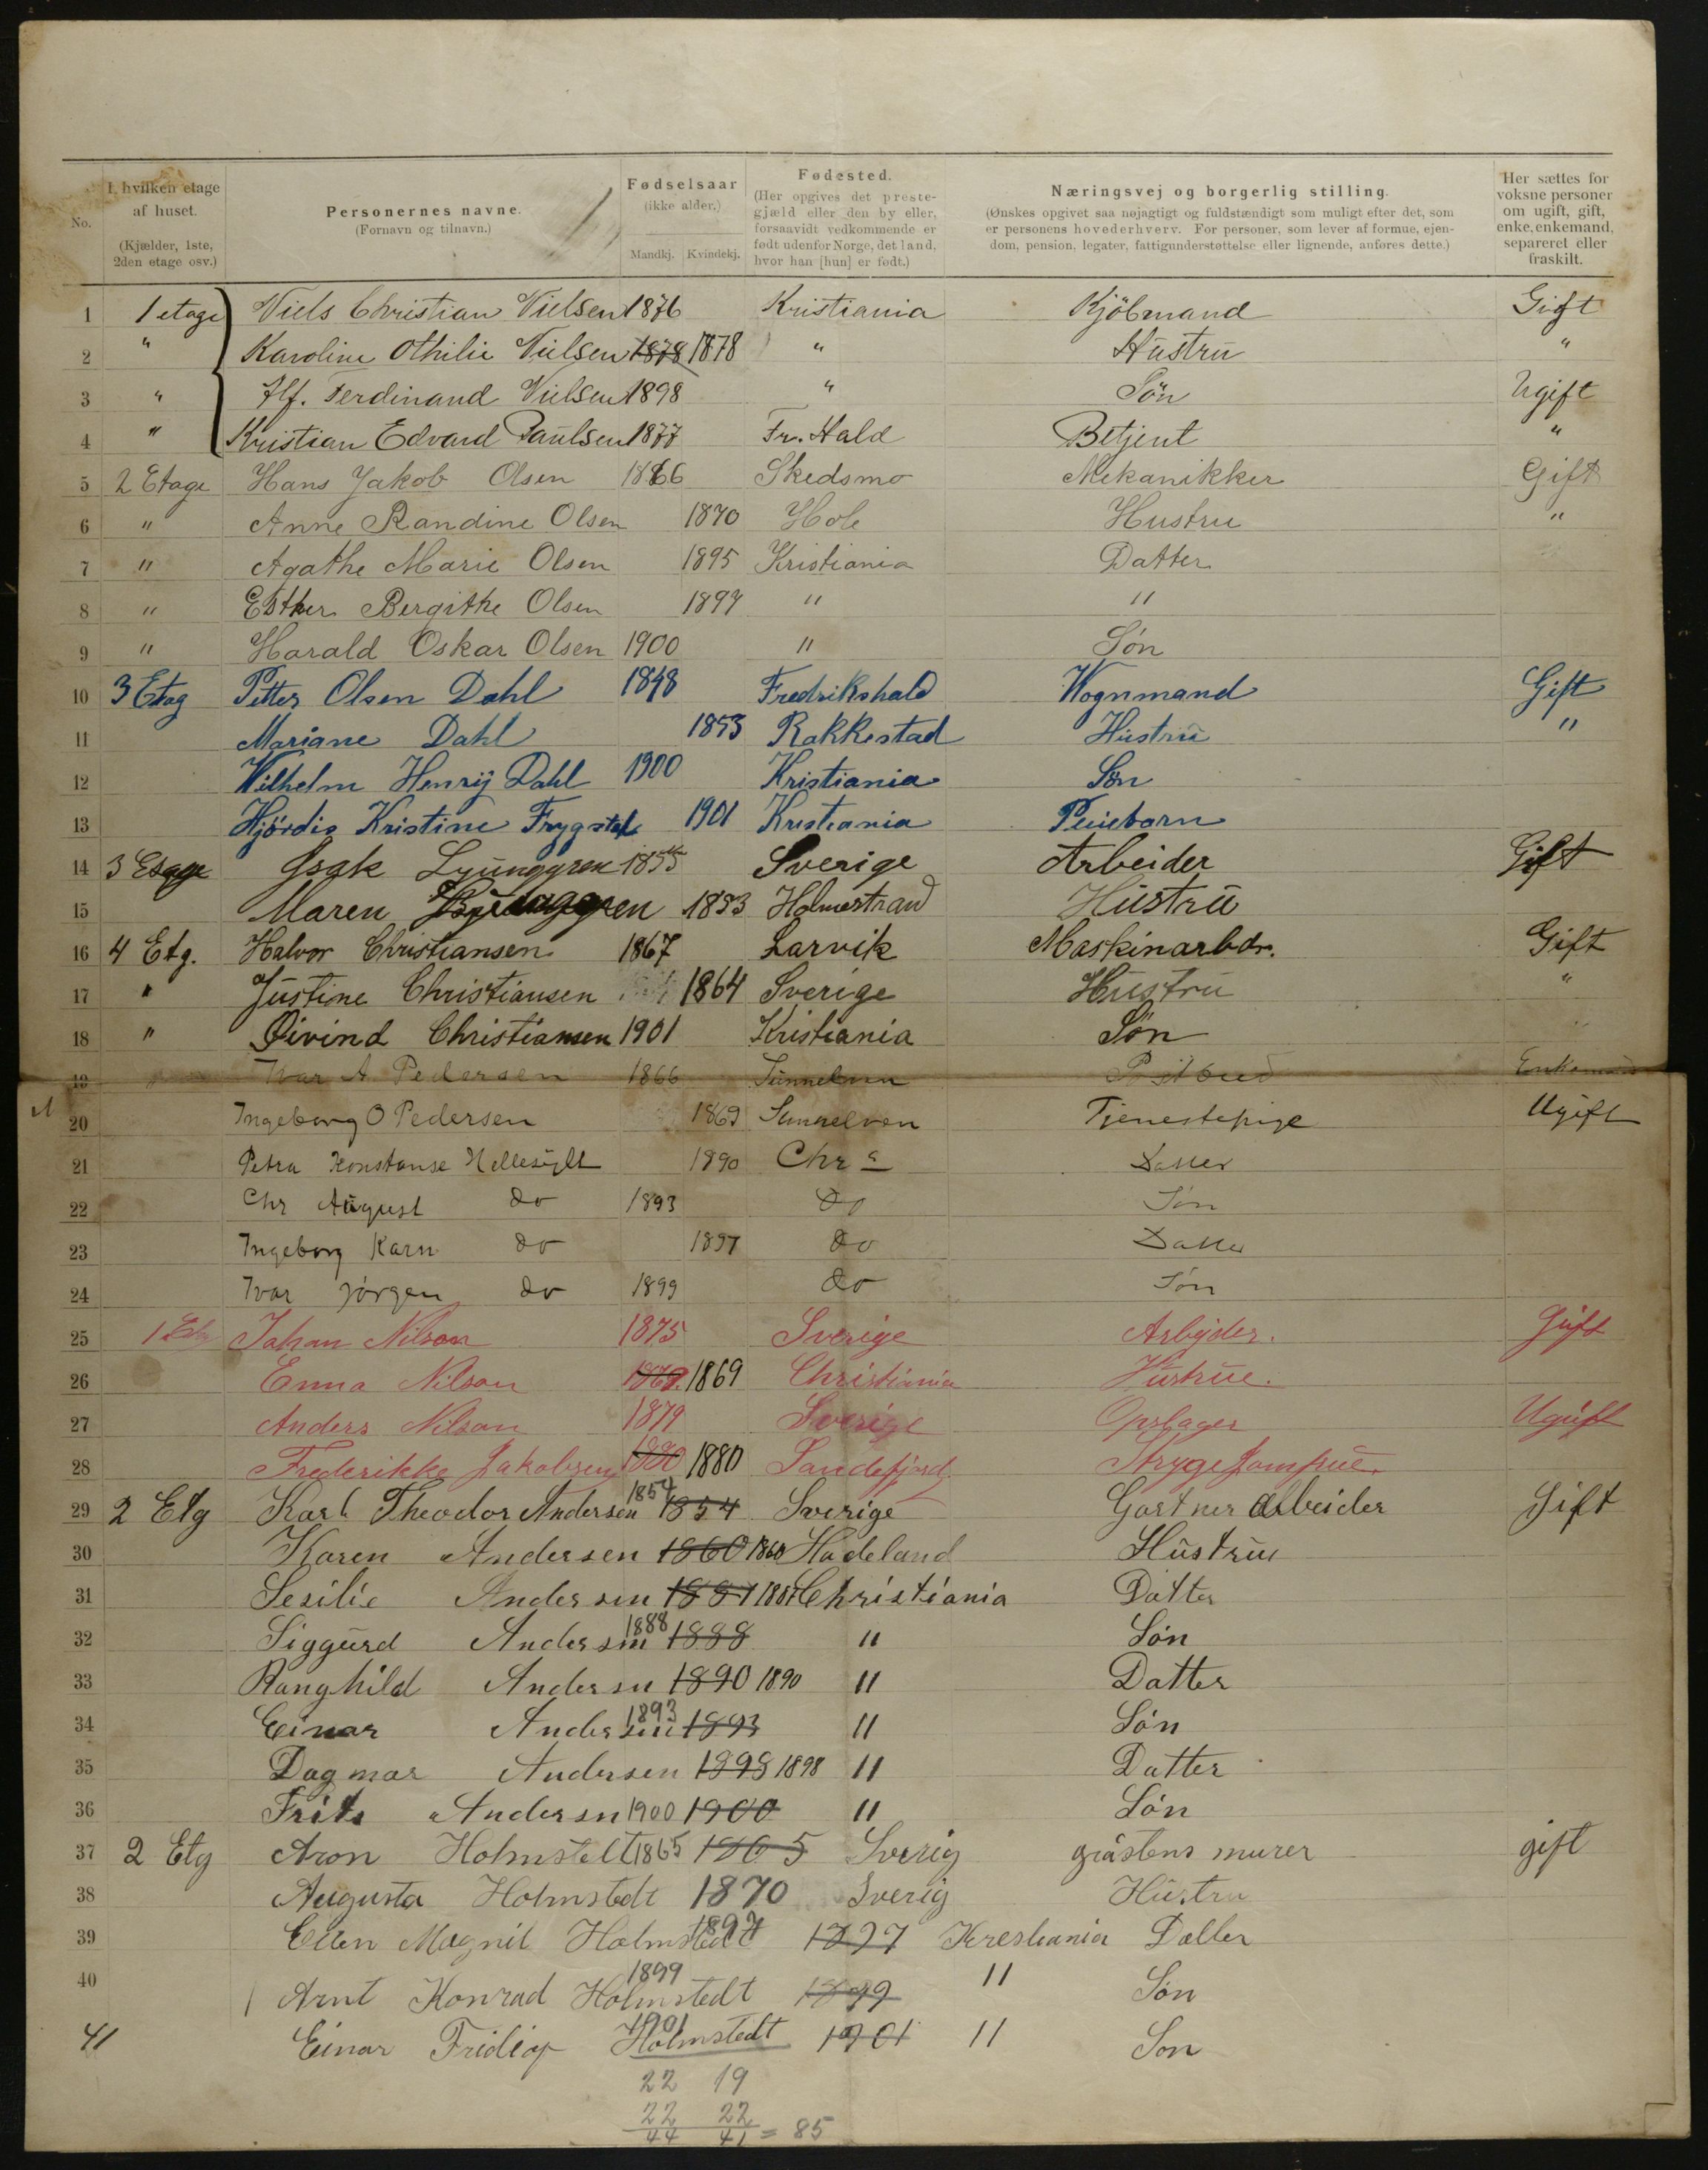 No.
I hvilken etage af huset. (Kjælder, 1ste, 2den etage osv.)
Personernes navne. (Fornavn og tilnavn.)
Fødselsaar (ikke alder.) Mandkj. Kvindekj.
Fødested. (Her opgives det prestegjæld eller den by eller, forsaavidt vedkommende er født udenfor Norge, det land, hvor han [hun] er født.)
Næringsvej og borgerlig stilling. (Ønskes opgivet saa nøjagtigt og fuldstændigt som muligt efter det, som er personens hovederhverv. For personer, som lever af formue, ejendom, pension, legater, fattigunderstøttelse eller lignende, anføres dette.)
Her sættes for voksne personer om ugift, gift, enke, enkemand, separeret eller fraskilt.
1 1 etage Niels Christian Nielsen 1876 Kristiania Kjöbmand Gift
2 " Karoline Othilie Nielsen 1878 1878 " Hustru "
3 " Alf. Ferdinand Nielsen 1898 " Sön Ugift
4 " Kristian Edvard Paulsen 1877 Fr. Hald Betjent "
5 2 Etage Hans Jakob Olsen 1866 Skedsmo Mekanikker Gift
6 " Anne Randine Olsen 1870 Hole Hustru "
7 " Agathe Marie Olsen 1895 Kristiania Datter
8 " Esther Bergithe Olsen 1897 " "
9 " Harald Oskar Olsen 1900 " Søn
10 3 Etag Petter Olsen Dahl 1848 Fredrikshald Vognmand Gift
11 Mariane Dahl 1853 Rakkestad Hustru "
12 Wilhelm Henrij Dahl 1900 Kristiania Sön
13 Hjördis Kristine Frygstad 1901 Kristiania Pleiebarn
14 3 Etage Isak Ljunggren 1855 Sverige Arbeider Gift
15 Maren Ljunggren 1853 Holmestrand Hustru
16 4 Etg. Halvor Christiansen 1867 Larvik Maskinarbdr. Gift
17 " Justine Christiansen 1864 Sverige Hustru "
18 " Øivind Christiansen 1901 Kristiania Søn
19 Ivar A. Pedersen 1866 Sunnelven Postbud Enkemand
20 Ingeborg O Pedersen 1869 Sunnelven Tjenestepige Ugift
21 Petra Konstanse Hellesylt 1890 Chr a Datter
22 Chr August do 1893 do Søn
23 Ingeborg Karn do 1897 do Datter
24 Ivar Jørgen do 1899 do Søn
25 1 Etg Johan Nilson 1875 Sverige Arbejder. Gift
26 Enna Nilson 1869. 1869 Christiania Hustrue.
27 Anders Nilson 1879 Sverige Opslager Ugift
28 Frederikke Jakobsen 1880 1880 Sandefjord Strygejomfrue.
29 2 Etg Karl Theodor Andersen 1854 1854 Sverige Gartner arbeider Gift
30 Karen Andersen 1860 1860 Hadeland Hustrue
31 Sesilie Andersen 1887 1887 Christiania Datter
32 Siggurd Andersen 1888 1888 " Søn
33 Ranghild Andersn 1890 1890 " Datter
34 Einar Andersen 1893 1893 " Søn
35 Dagmar Andersen 1898 1898 " Datter
36 Frits Andersn 1900 1900 " Søn
37 2 Etg Aron Holmstedt 1865 1865 Sverig gråstens murer gift
38 Augusta Holmstedt 1870 Sverig Hustru
39 Ellen Magnil Holmstedt 1897 1897 Krestiania Datter
40 Arnt Konrad Holmstedt 1899 1899 " Søn
41 Einar Fridiof Holmstedt 1901 1901 " Søn
22 19
22 22
44 41 = 85